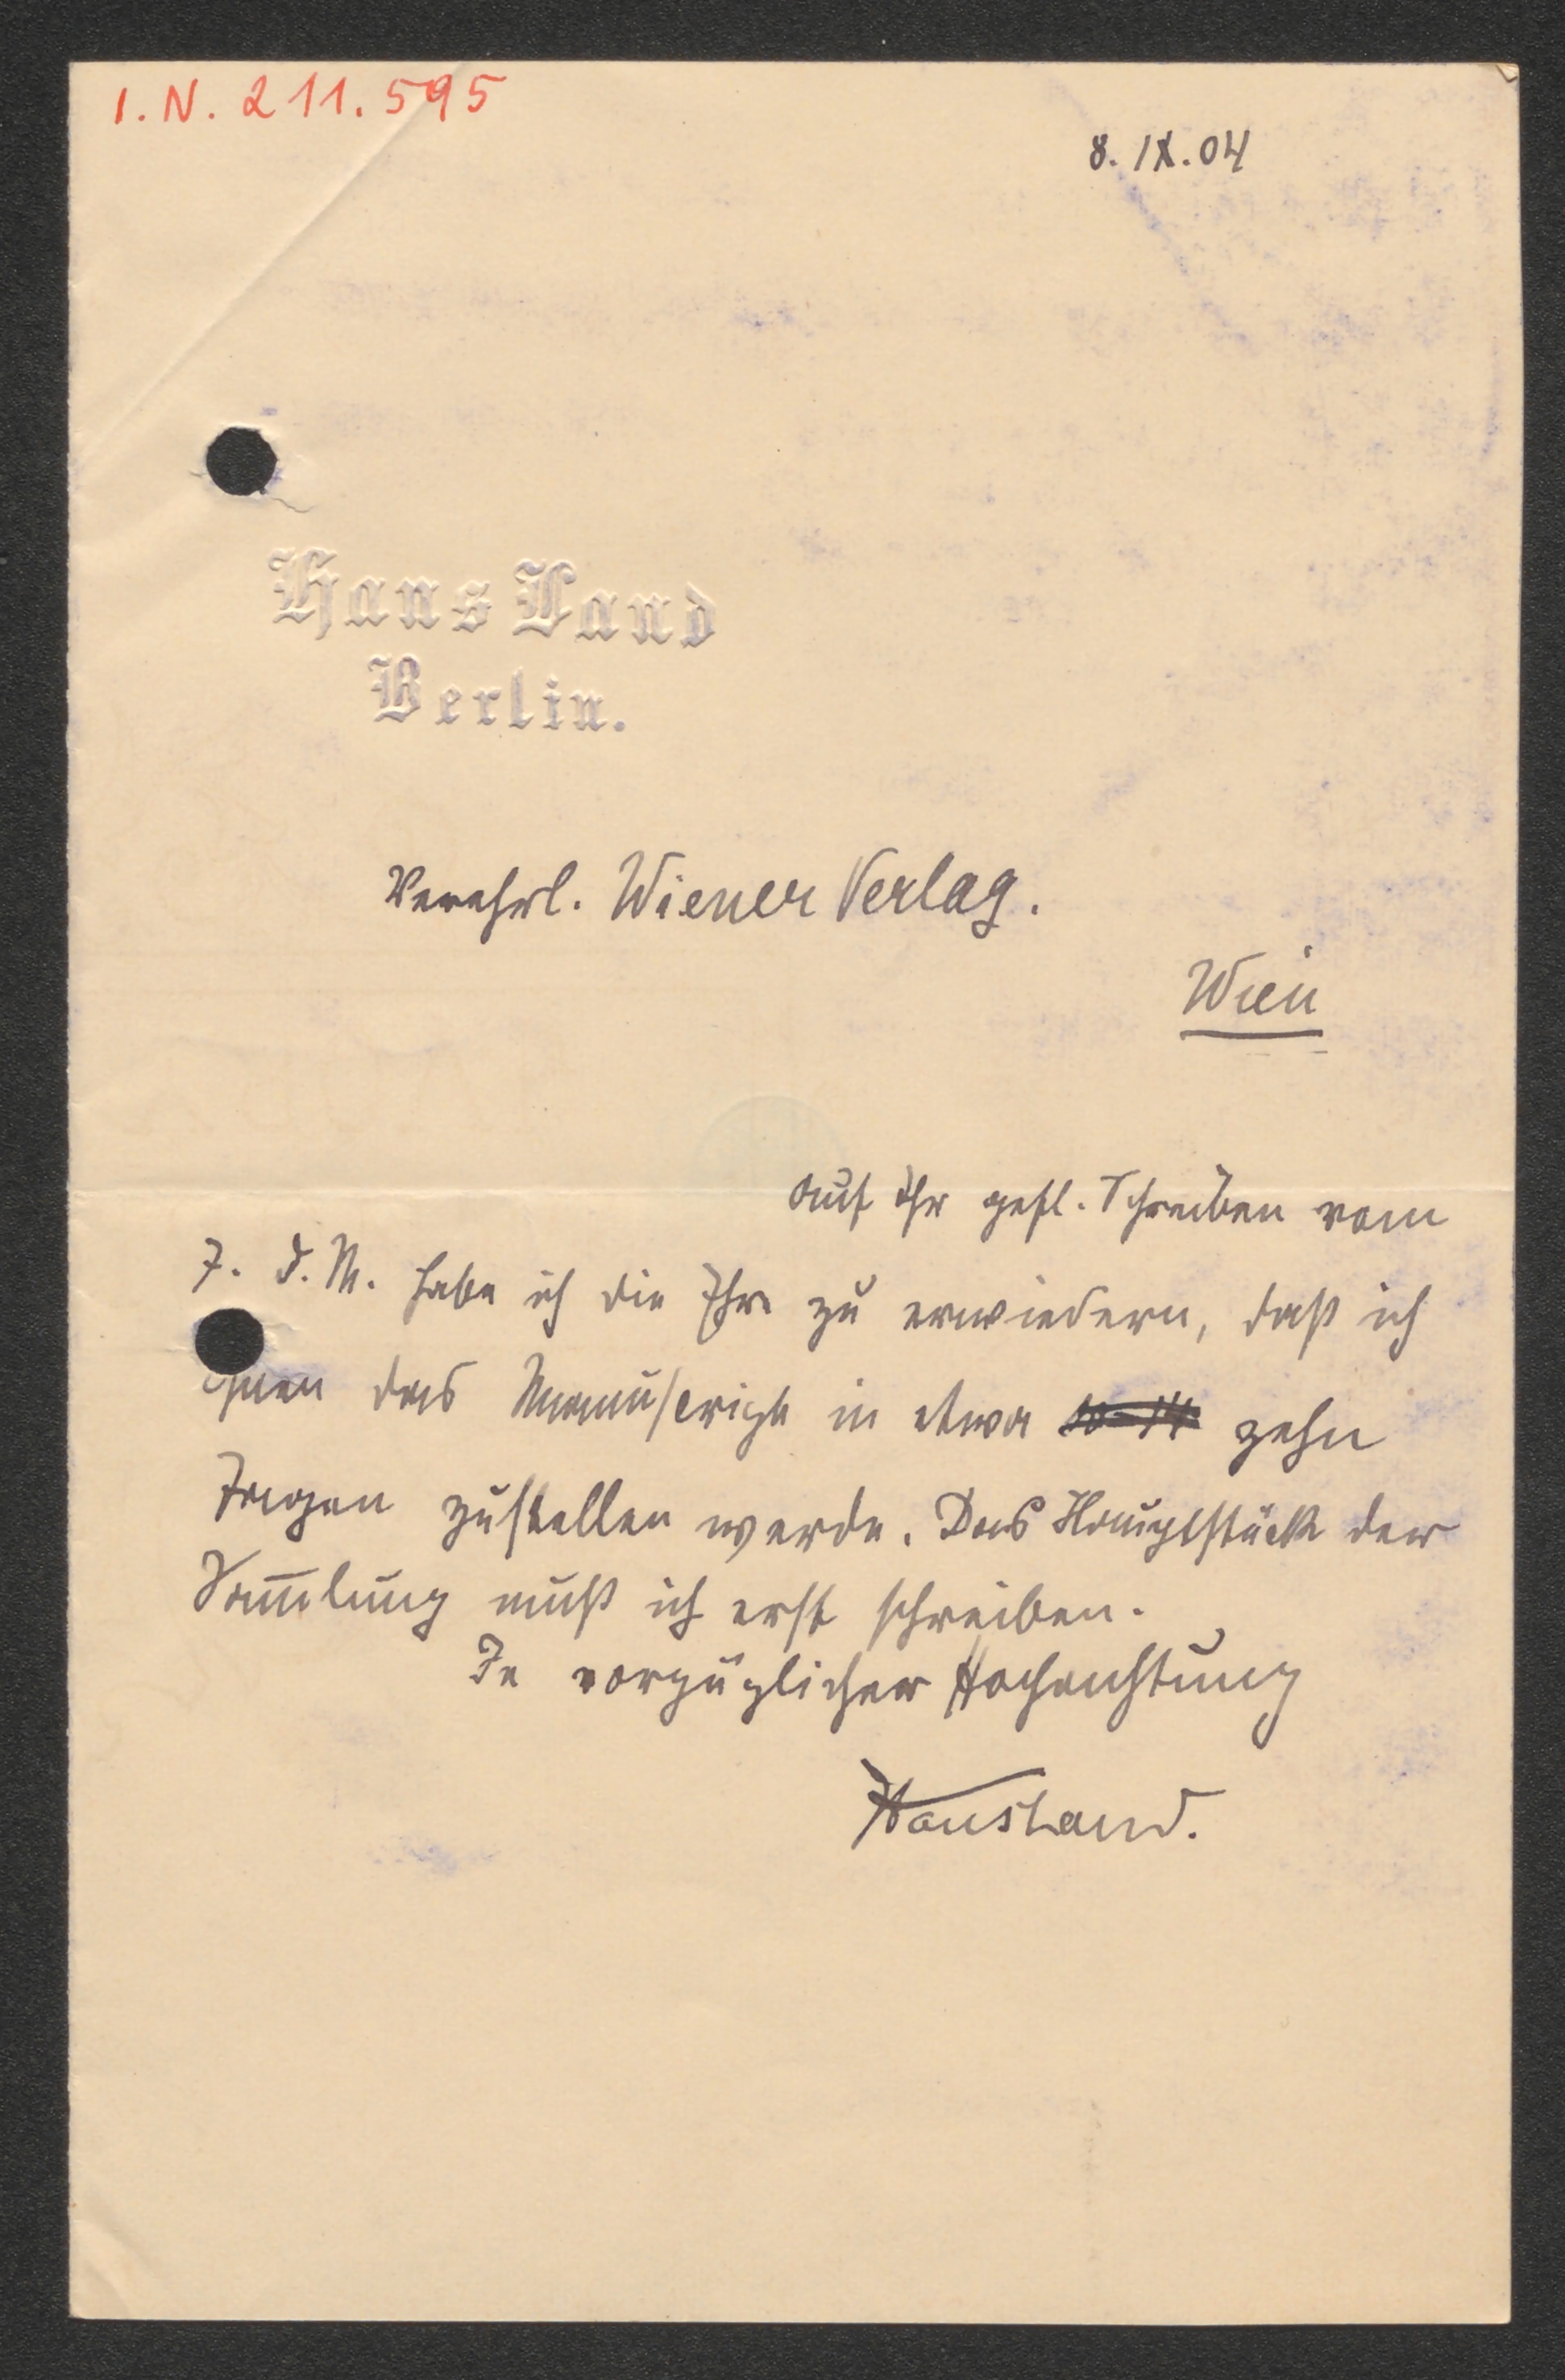 I. N. 211.595
8. IX. 04
Hans Land
Berlin.
Verehrl. Wiener Verlag.
Wien
Auf Ihr gefl. Schreiben vom
7. d. M. habe ich die Ehre zu erwiedern, daß ich
Ihnen das Manuscript in etwa 10–14 zehn
Tagen zustellen werde. Das Hauptstück der
Sam̅lung muß ich erst schreiben.
In vorzüglicher Hochachtung
Hans Land.